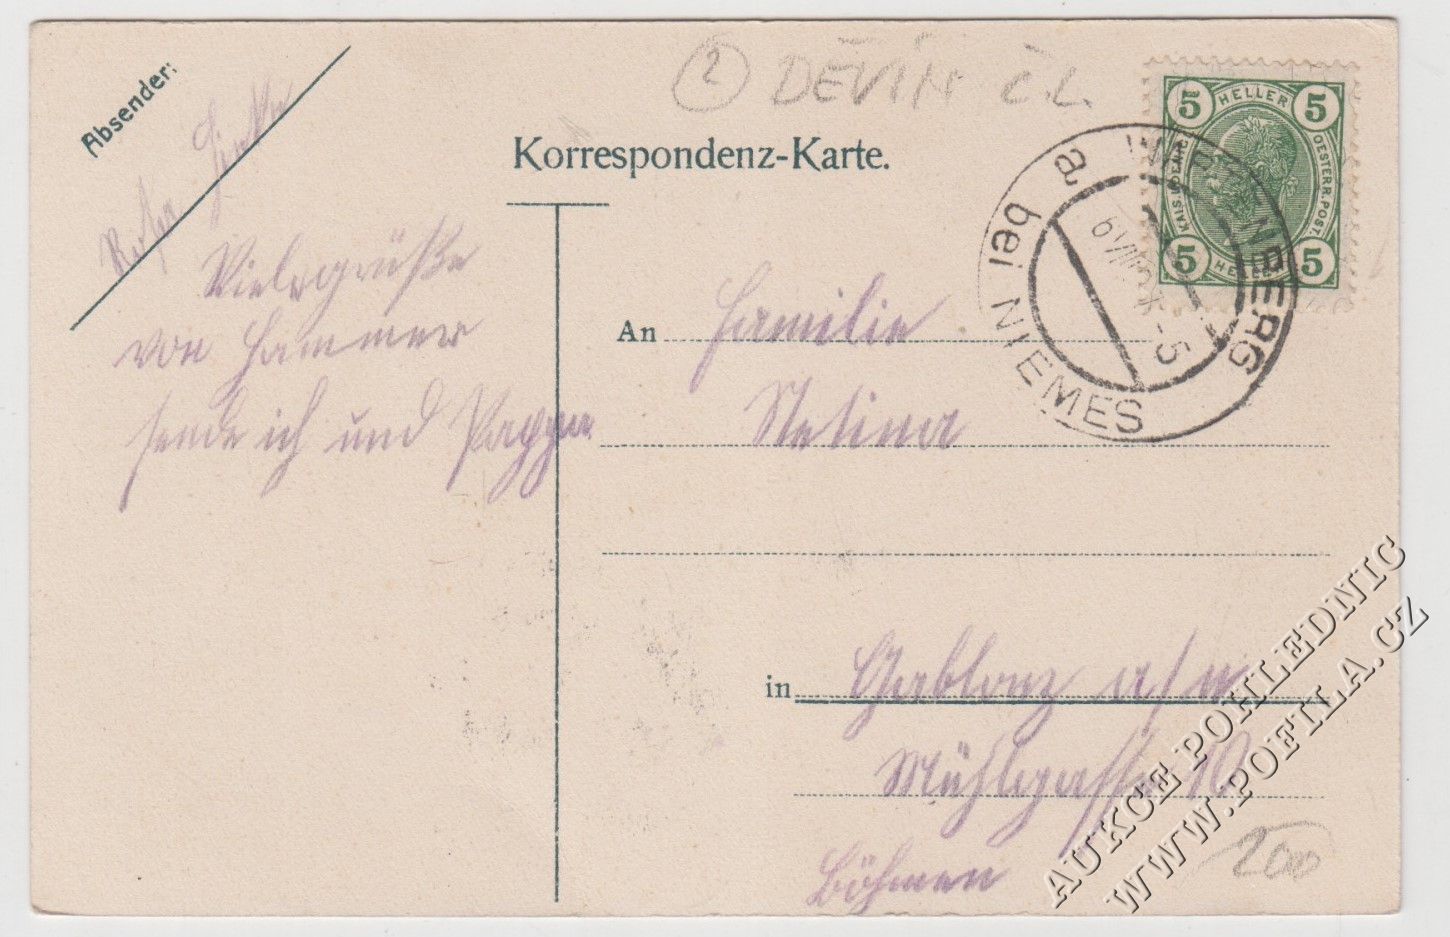 Absender:
② DĚVÍN Č.L.
Korrespondenz-Karte.
5 HELLER 5
KAIS. KOENIGL. OESTERR. POST.
5 HELLER 5
WARTENBERG
bei NIEMES
a
6 VIII -5
Vielegrüße
von Hammer
sende ich und Pappa
An Familie
Stetina
in Gablonz a/n
Mühlgasse 10
Böhmen
200
AUKCE POHLEDNIC
WWW.POFILA.CZ